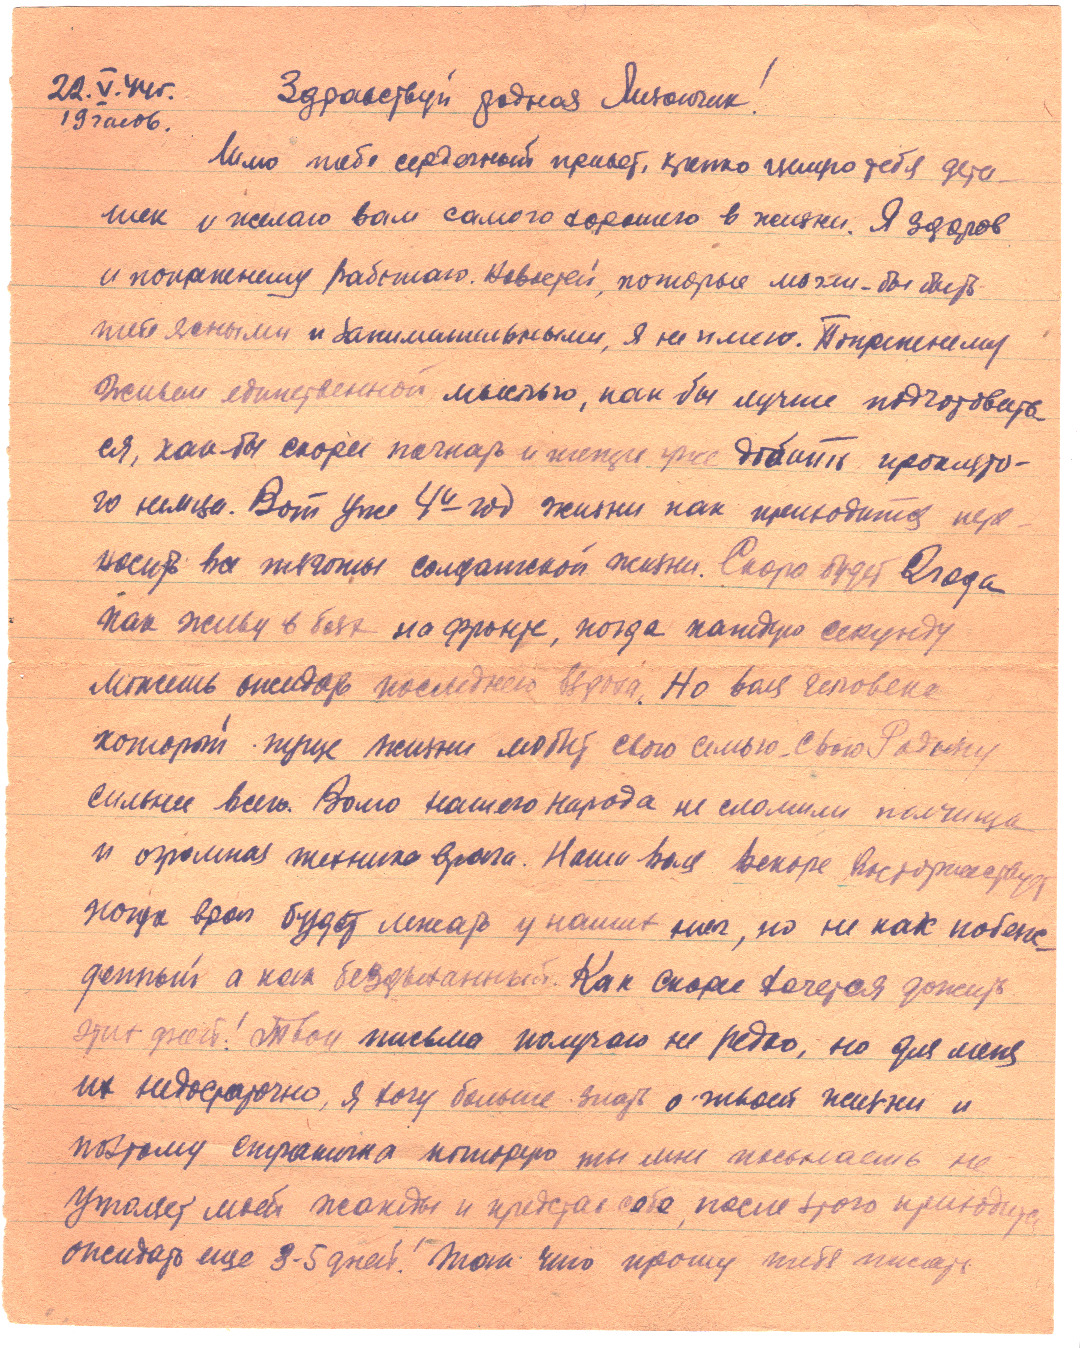 22.V.44г.
19 часов.
Здравствуй родная Лизончик!
Шлю тебе сердечный привет, крепко целую тебя дета-
шек и желаю вам самого хорошего в жизни. Я здоров
и попрежнему работаю. Новостей, которые могли-бы быть
тебе ясными и занимательными, я не имею. Попрежнему
живем единственной мыслью, как бы лучше подготовить-
ся, как-бы скорее начать и уже добить проклято-
го немца. Вот уже 4й год жизни как приходится пере-
носить все тяготы солдатской жизни. Скоро будет 2 года
как живу в боях на фронте, когда каждую секунду
можешь ожидать последнего вздоха. Но воля человека
который пуще жизни любит свою семью-свою Родину
сильнее всего. Волю нашего народа не сломили полчища
и огромная техника врага. Наша воля вскоре восторжествует
когда враг будет лежать у наших ног, но не как побеж-
денный а как бездыханный. Как скорее хочется дожить
этих дней! Твои письма получаю не редко, но для меня
их недостаточно, я хочу больше знать о твоей жизни и
поэтому страничка которую ты мне посылаешь не
утоляет моей жажды и представь себе, после этого приходится
ожидать еще 3-5 дней! Так что прошу тебя писать